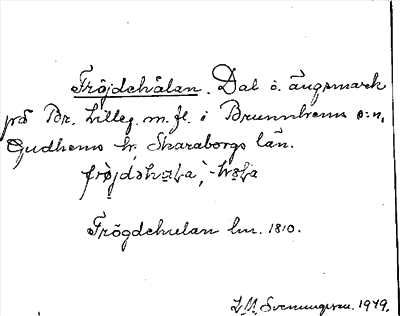 Fröjdehålan. Dal o. ängsmark
på Br. Lilleg. m. fl. i Brunnhems s:n,
Gudhems hr, Skaraborgs län.
Frögdehulan lm. 1810.
Svenungsson. 1949.